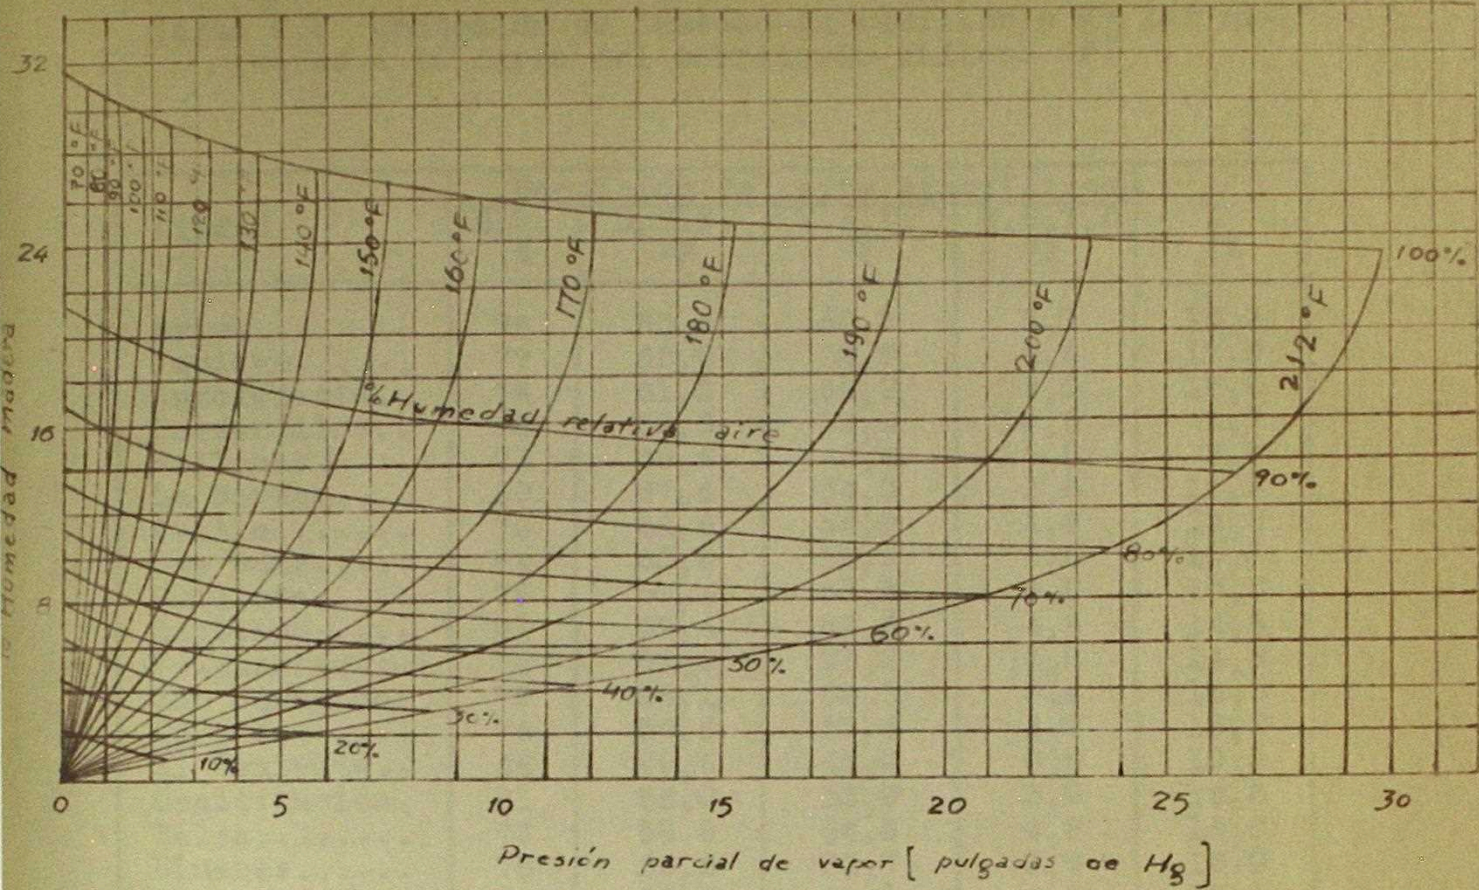 32
24
16
8
% Humedad madera
70 °F
80 °F
90 °F
100 °F
110 °F
120 °F
130 °F
140 °F
150 °F
160 °F
170 °F
180 °F
190 °F
200 °F
212 °F
% Humedad relativa aire
100%
90%
80%
70%
60%
50%
40%
30%
20%
10%
0 5 10 15 20 25 30
Presión parcial de vapor [ pulgadas de Hg ]